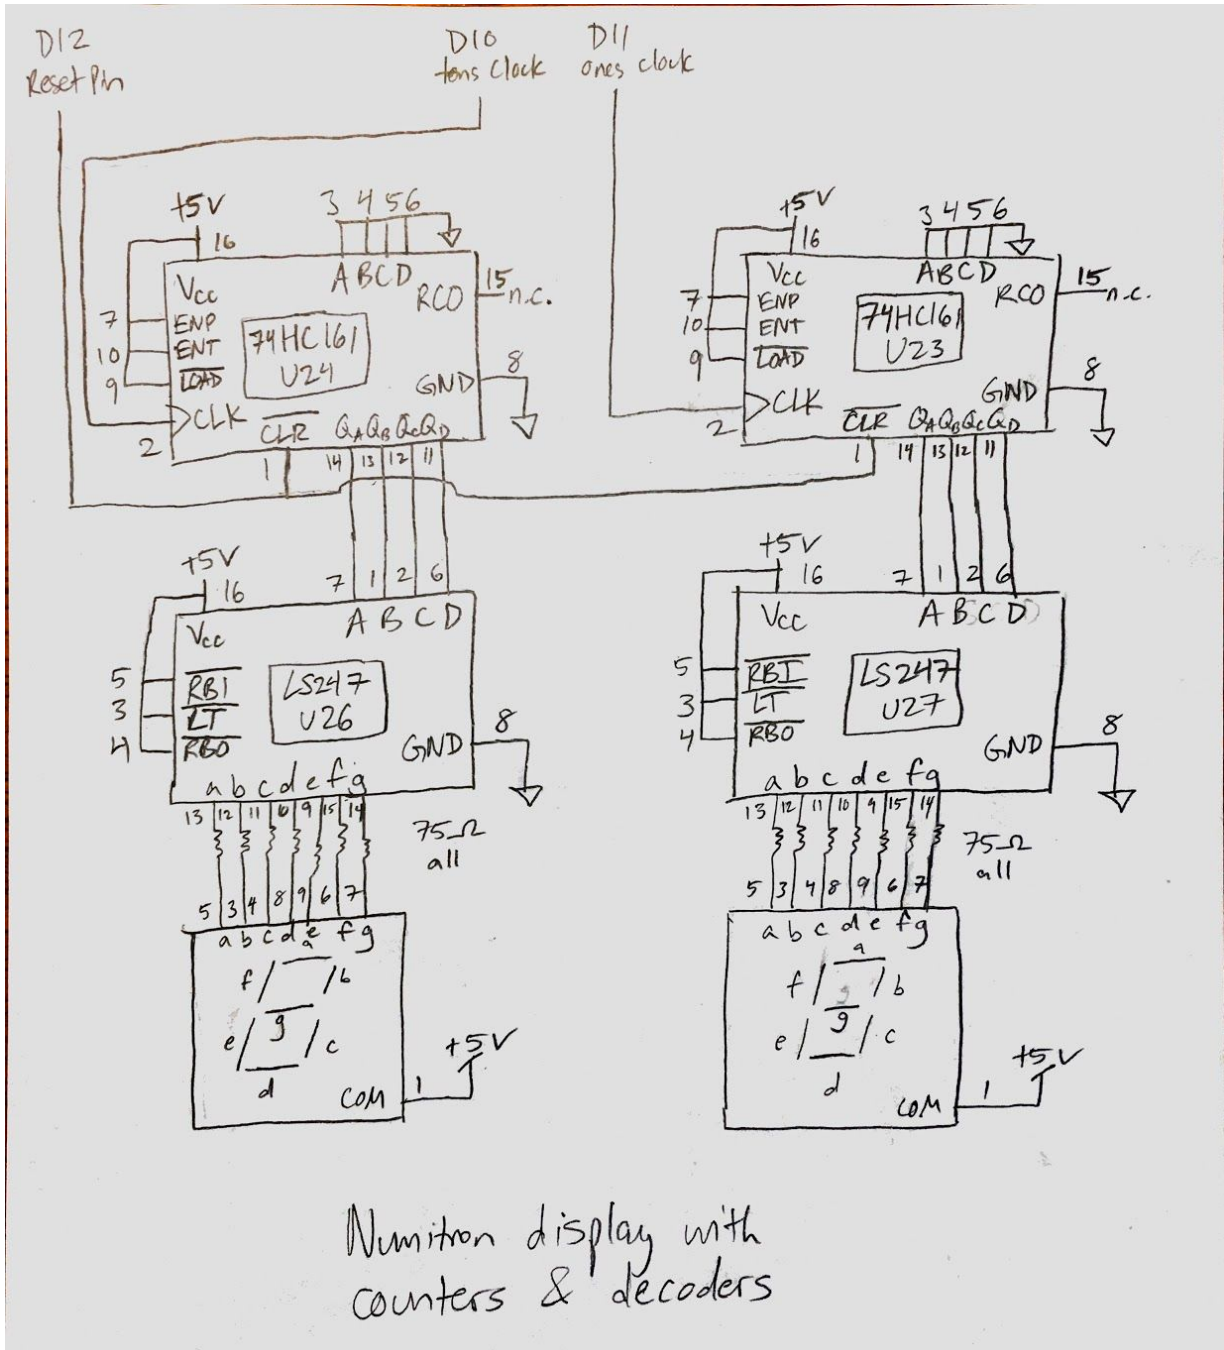 D12
Reset Pin
D10
tens Clock
D11
ones clock
+5V
16
3 4 5 6
Vcc
A B C D
RCO
15
n.c.
7
ENP
10
ENT
9
LOAD
74HC161
U24
GND
8
CLK
2
CLR
QA QB QC QD
1
14 13 12 11
+5V
16
3 4 5 6
Vcc
A B C D
RCO
15
n.c.
7
ENP
10
ENT
9
LOAD
74HC161
U23
GND
8
CLK
2
CLR
QA QB QC QD
1
14 13 12 11
+5V
16
7 1 2 6
Vcc
A B C D
5
RBI
3
LT
4
RBO
LS247
U26
GND
8
a b c d e f g
13 12 11 10 9 15 14
75Ω
all
5 3 4 8 9 6 7
a b c d e f g
a
f
b
g
e
c
d
COM
1
+5V
+5V
16
7 1 2 6
Vcc
A B C D
5
RBI
3
LT
4
RBO
LS247
U27
GND
8
a b c d e f g
13 12 11 10 9 15 14
75Ω
all
5 3 4 8 9 6 7
a b c d e f g
a
f
b
g
e
c
d
COM
1
+5V
Numitron display with
counters & decoders